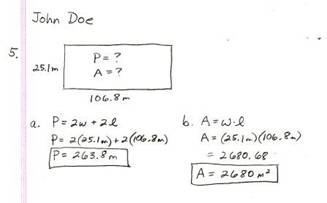 John Doe
5.
P = ?
25.1m
A = ?
106.8m
a. P = 2w + 2l
P = 2(25.1m) + 2(106.8m)
P = 263.8m
b. A = w·l
A = (25.1m)(106.8m)
= 2680.68
A = 2680 m²